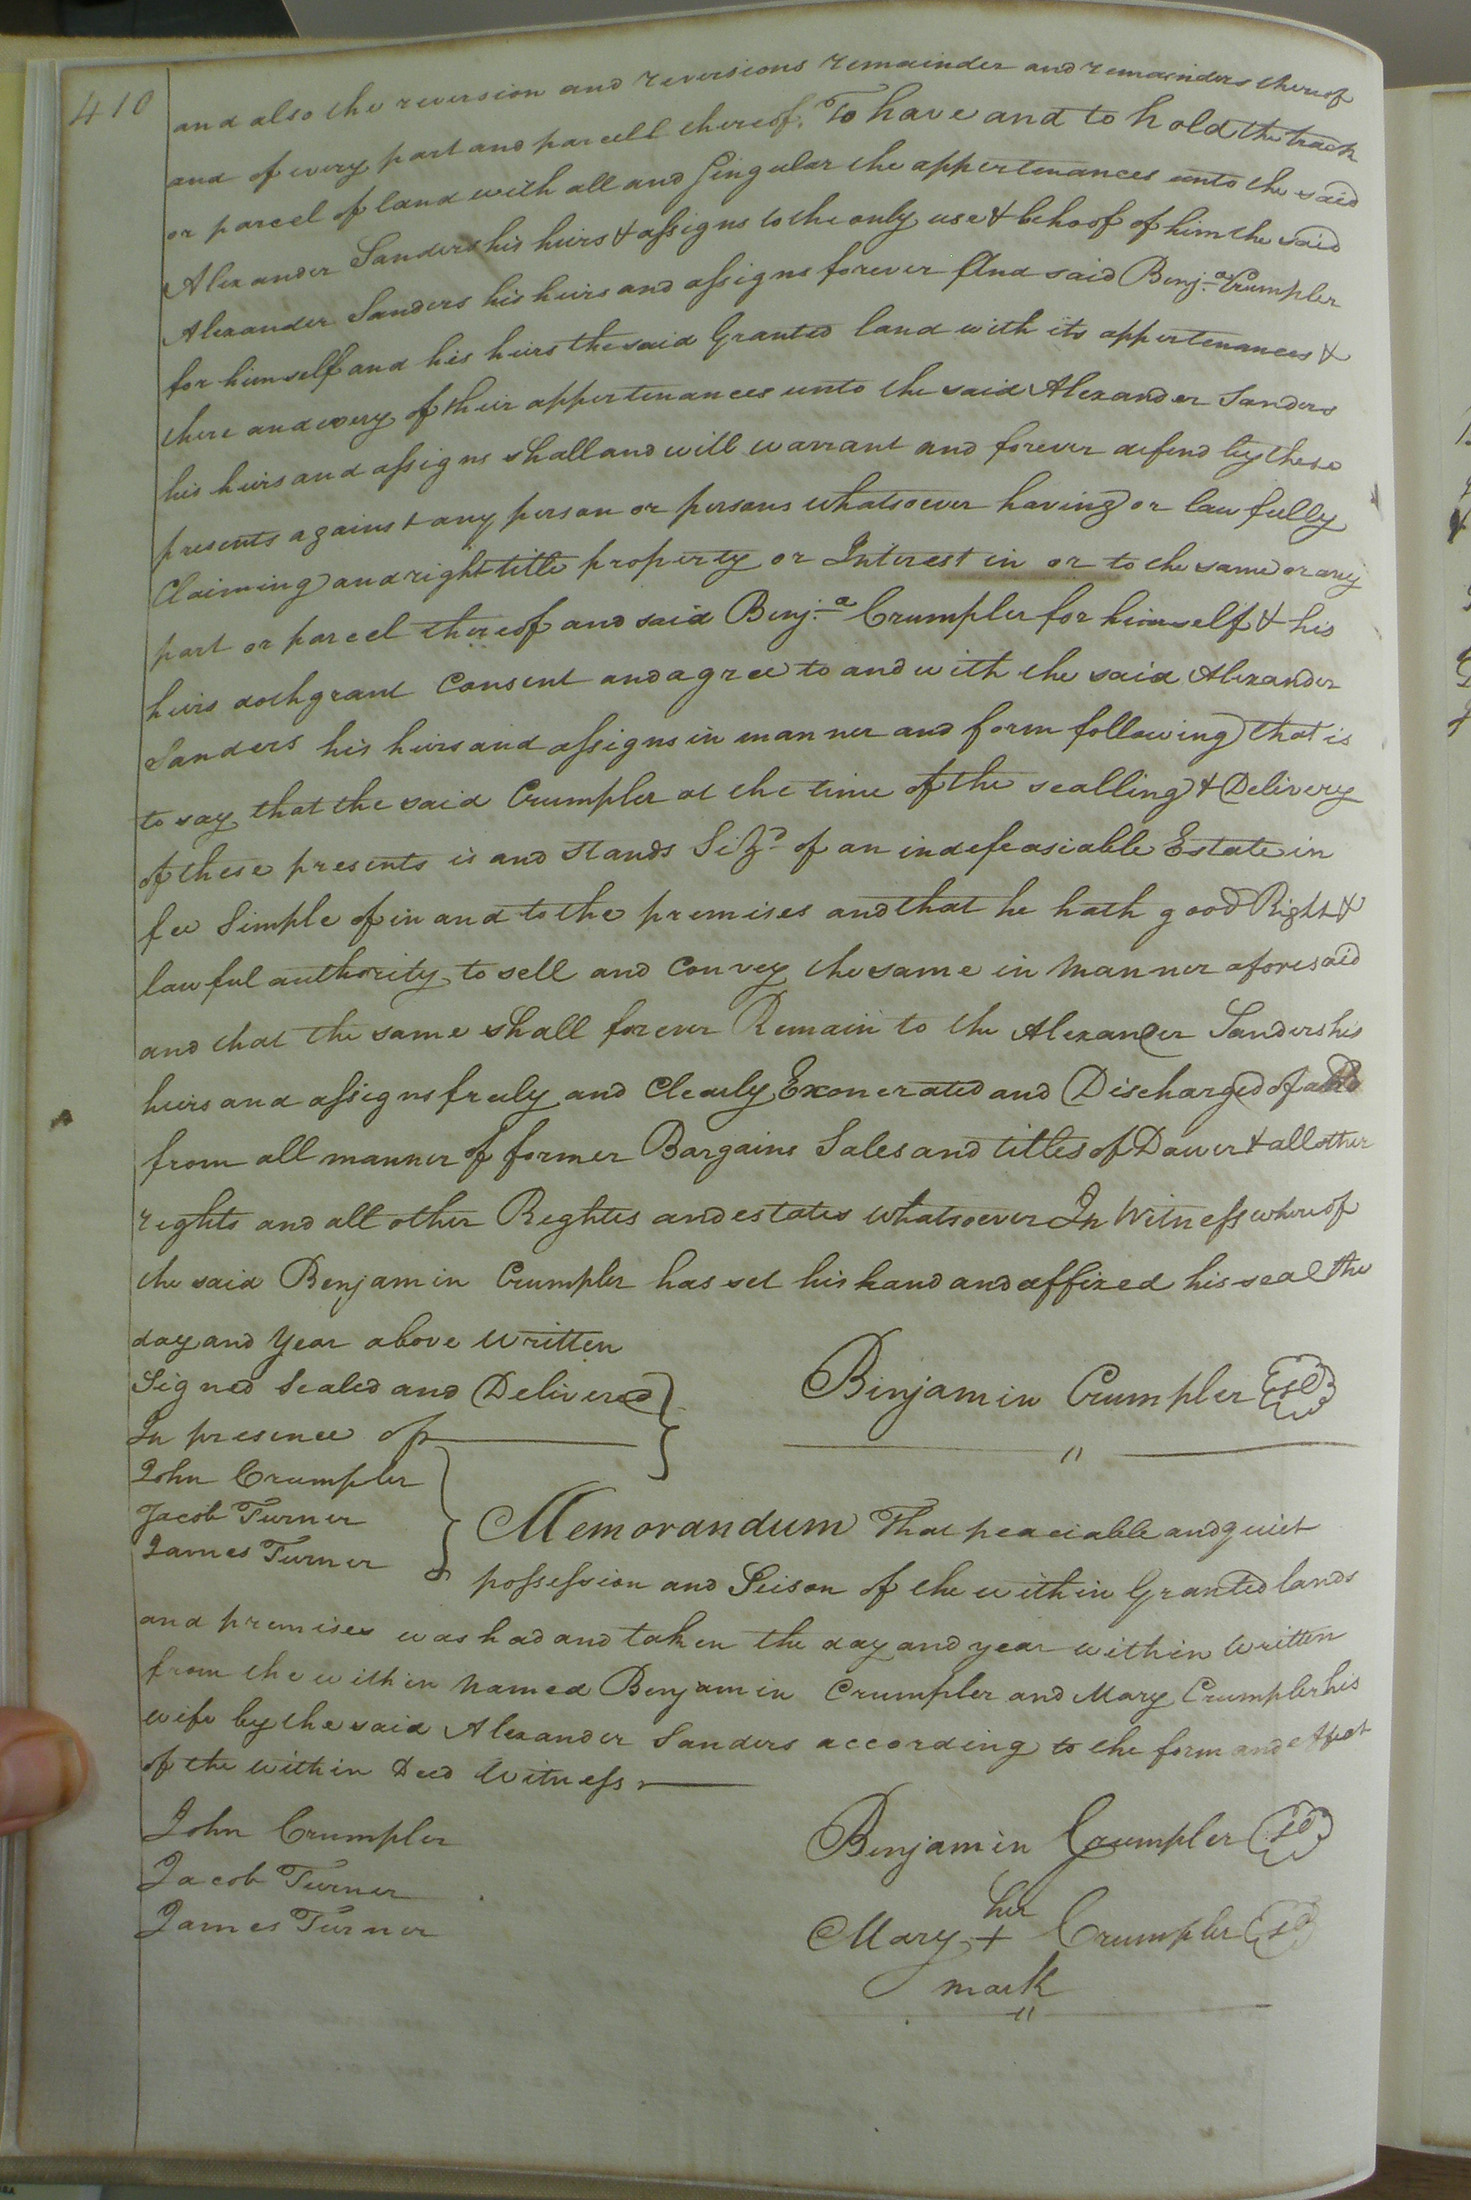 410
and also the reversion and reversions remainder and remainders thereof
and of every part and parcell thereof. To have and to hold the track
or parcel of land with all and Singular the appertenances unto the said
Alexander Sanders his heirs & assigns to the only use & behoof of him the said
Alexander Sanders his heirs and assigns forever And said Benj.a Crumpler
for himself and his heirs the said Granted land with its appertenances &
there and every of their appertenances unto the said Alexander Sanders
his heirs and assigns shall and will warrant and forever defend by these
presents against any person or persons whatsoever having or lawfully
Claiming and right title property or Interest in or to the same or any
part or parcel thereof and said Benj.a Crumpler for himself & his
heirs doth grant Consent and agree to and with the said Alexander
Sanders his heirs and assigns in manner and form following that is
to say that the said Crumpler at the time of the sealling & Delivery
of these presents is and stands Siz.d of an indefeasiable Estate in
fee Simple of in and to the premises and that he hath good Right &
lawful authority to sell and convey the same in manner aforesaid
and that the same shall forever Remain to the Alexander Sanders his
heirs and assigns freely and Clearly Exonerated and Discharged of and
from all manner of former Bargains Sales and titles of Dower & all other
rights and all other Reghtes and estates whatsoever In Witness whereof
the said Benjamin Crumpler has set his hand and affixed his seal the
day and Year above written
Signed Sealed and Delivered
In presence of
Benjamin Crumpler
John Crumpler
Jacob Turner
James Turner
Memorandum That peaciable and quiet
possession and Seison of the within Granted lands
and premises was had and taken the day and year within written
from the within named Benjamin Crumpler and Mary Crumpler his
wife by the said Alexander Sanders according to the form and effect
of the within Deed Witness
John Crumpler
Jacob Turner
James Turner
Benjamin Crumpler
her
Mary + Crumpler
mark